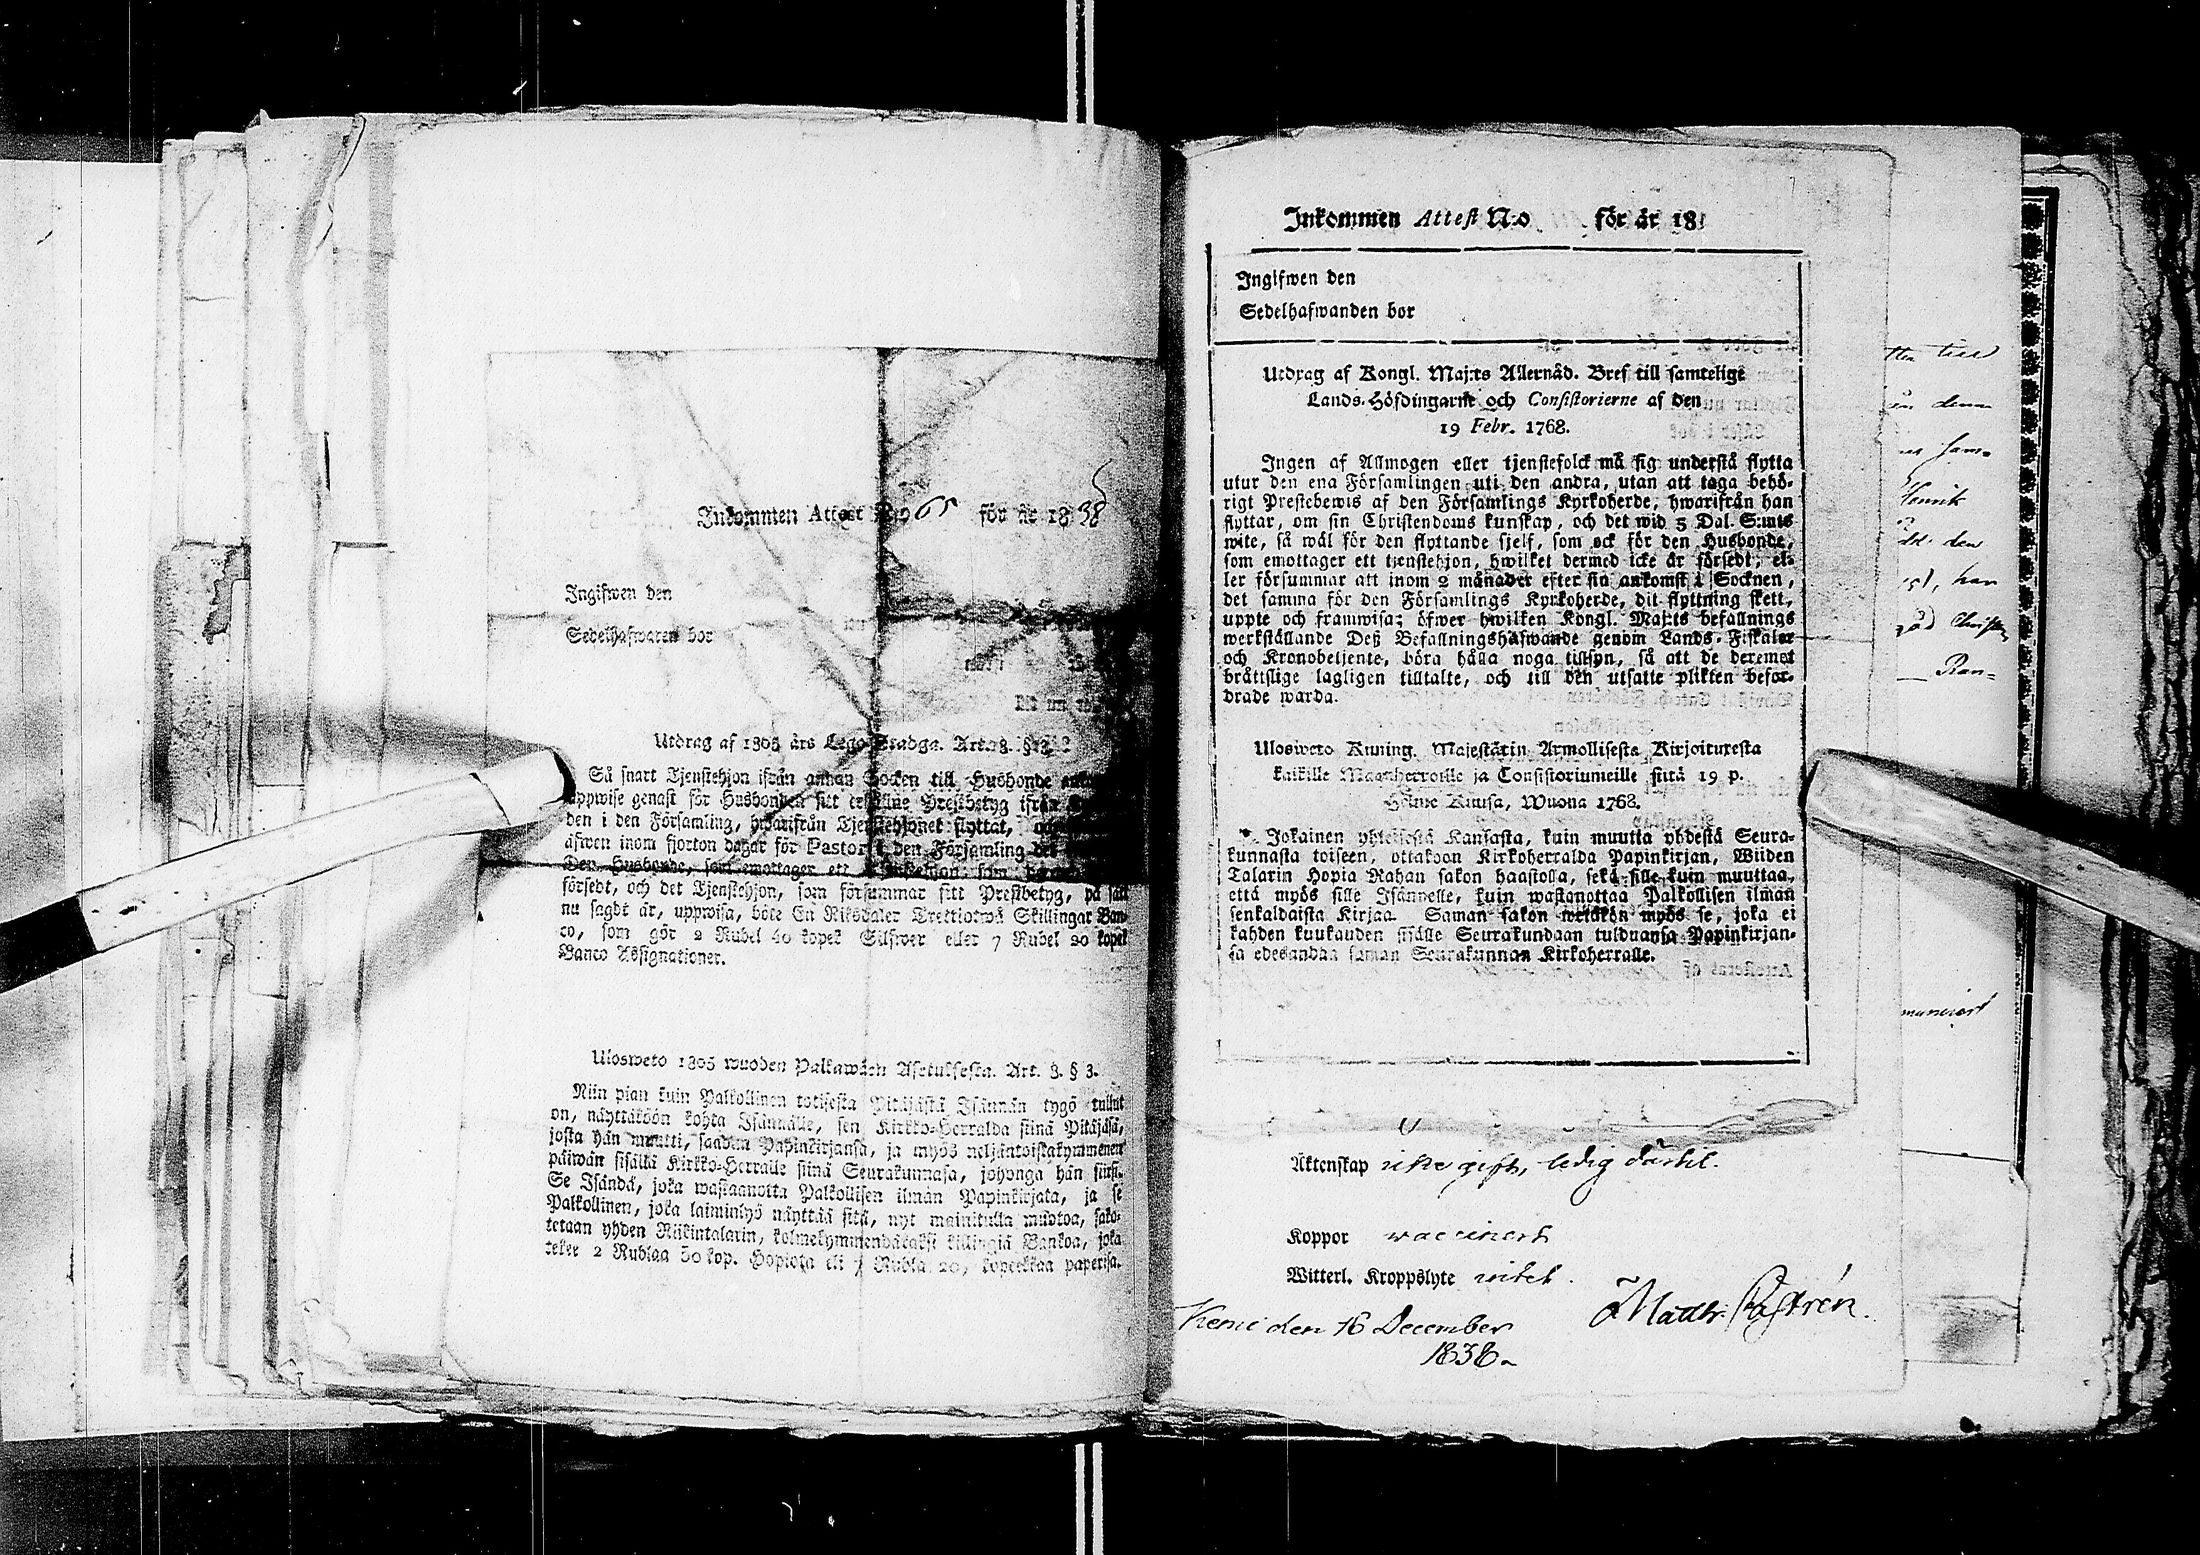 Inkommen Attest N:o 65 för år 1838
Ingifwen den
Sedelhafwaren bor
Utdrag af 1805 års Lego-Stadga. Art. 3. §
Så snart Tjenstehjon ifrån annan Socken till Husbonde
uppwise genast för Husbonden sitt Prestbetyg ifrån
den i den Församling, hwarifrån Tjenstehjonet flyttat,
äfwen inom fjorton dagar för Pastor i den Församling
Den Husbonde, som emottager ett Tjenstehjon,
försedt, och det Tjenstehjon, som försummar sitt Prestbetyg, på sätt
nu sagdt är, uppwisa, böte En Riksdaler Trettiotwå Skillingar Ban-
co, som gör 2 Rubel 40 kopek Silfwer eller 7 Rubel 20 kopek
Banco Assignationer.
Ulosweto 1805 wuoden Palkawäen Asetuksesta. Art. 3. § 3.
Niin pian kuin Palkollinen totisesta Pitäjästä Isännän tygö tullut
on, näyttäköön kohta Isännälle, sen Kirkko-Herralda siinä Pitäjäsä,
josta hän muutti, saadun Papinkirjansa, ja myös neljäntoistakymmenen
päiwän sisällä Kirkko-Herralle siinä Seurakunnasa, johonga hän siirsi.
Se Isändä, joka wastaanotta Palkollisen ilman Papinkirjata, ja se
Palkollinen, joka laiminlyö näyttää sitä, nyt mainitulla muotoa, sako-
tetaan yhden Riikintalarin, kolmekymmendäkaksi killingiä Bankoa, joka
tekee 2 Rublaa 50 kop. Hopiota eli 7 Rubla 20, kopeekkaa paperisa.
Inkommen Attest N:o för år 18
Ingifwen den
Sedelhafwanden bor
Utdrag af Kongl. Maj:ts Allernåd. Bref till samtelige
Lands-Höfdingarne och Consistorierne af den
19 Febr. 1768.
Ingen af Allmogen eller tjenstefolck må sig understå flytta
utur den ena Församlingen uti den andra, utan att taga behö-
rigt Prestebewis af den Församlings Kyrkoherde, hwarifrån han
flyttar, om sin Christendoms kunskap, och det wid 5 Dal. S:mts
wite, så wäl för den flyttande sjelf, som ock för den Husbonde,
som emottager ett tjenstehjon, hwilket dermed icke är försedt, el-
ler försummar att inom 2 månader efter sin ankomst i Socknen,
det samma för den Församlings Kyrkoherde, dit flyttning skett,
uppte och framwisa; öfwer hwilken Kongl. Maj:ts befallnings
werkställande Deß Befallningshafwande genom Lands-Fiskaler
och Kronobetjente, böra hålla noga tillsyn, så att de deremot
bråttslige lagligen tilltalte, och till den utsatte plikten befor-
drade warda.
Ulosweto Kuning. Majestätin Armollisesta Kirjoituxesta
kaikille Maanherroille ja Consistoriumeille siitä 19 p.
Helme Kuusa, Wuona 1768.
Jokainen yhteisestä Kansasta, kuin muutta yhdestä Seura-
kunnasta toiseen, ottakoon Kirkoherralda Papinkirjan, Wiiden
Talarin Hopia Rahan sakon haastolla, sekä sille kuin muuttaa,
että myös sille Isännelle, kuin wastanottaa Palkollisen ilman
senkaldaista Kirjaa. Saman sakon wetäkön myös se, joka ei
kahden kuukauden sisälle Seurakundaan tulduansa Papinkirjan-
sa edesandaa saman Seurakunnan Kirkoherralle.
Äktenskap icke gift, ledig dertil.
Koppor waccinerd
Witterl. Kroppslyte intet.
Kemi den 16 December
1838.
Matth. Castrén.
Henrik
den
han
Christen
Ran-